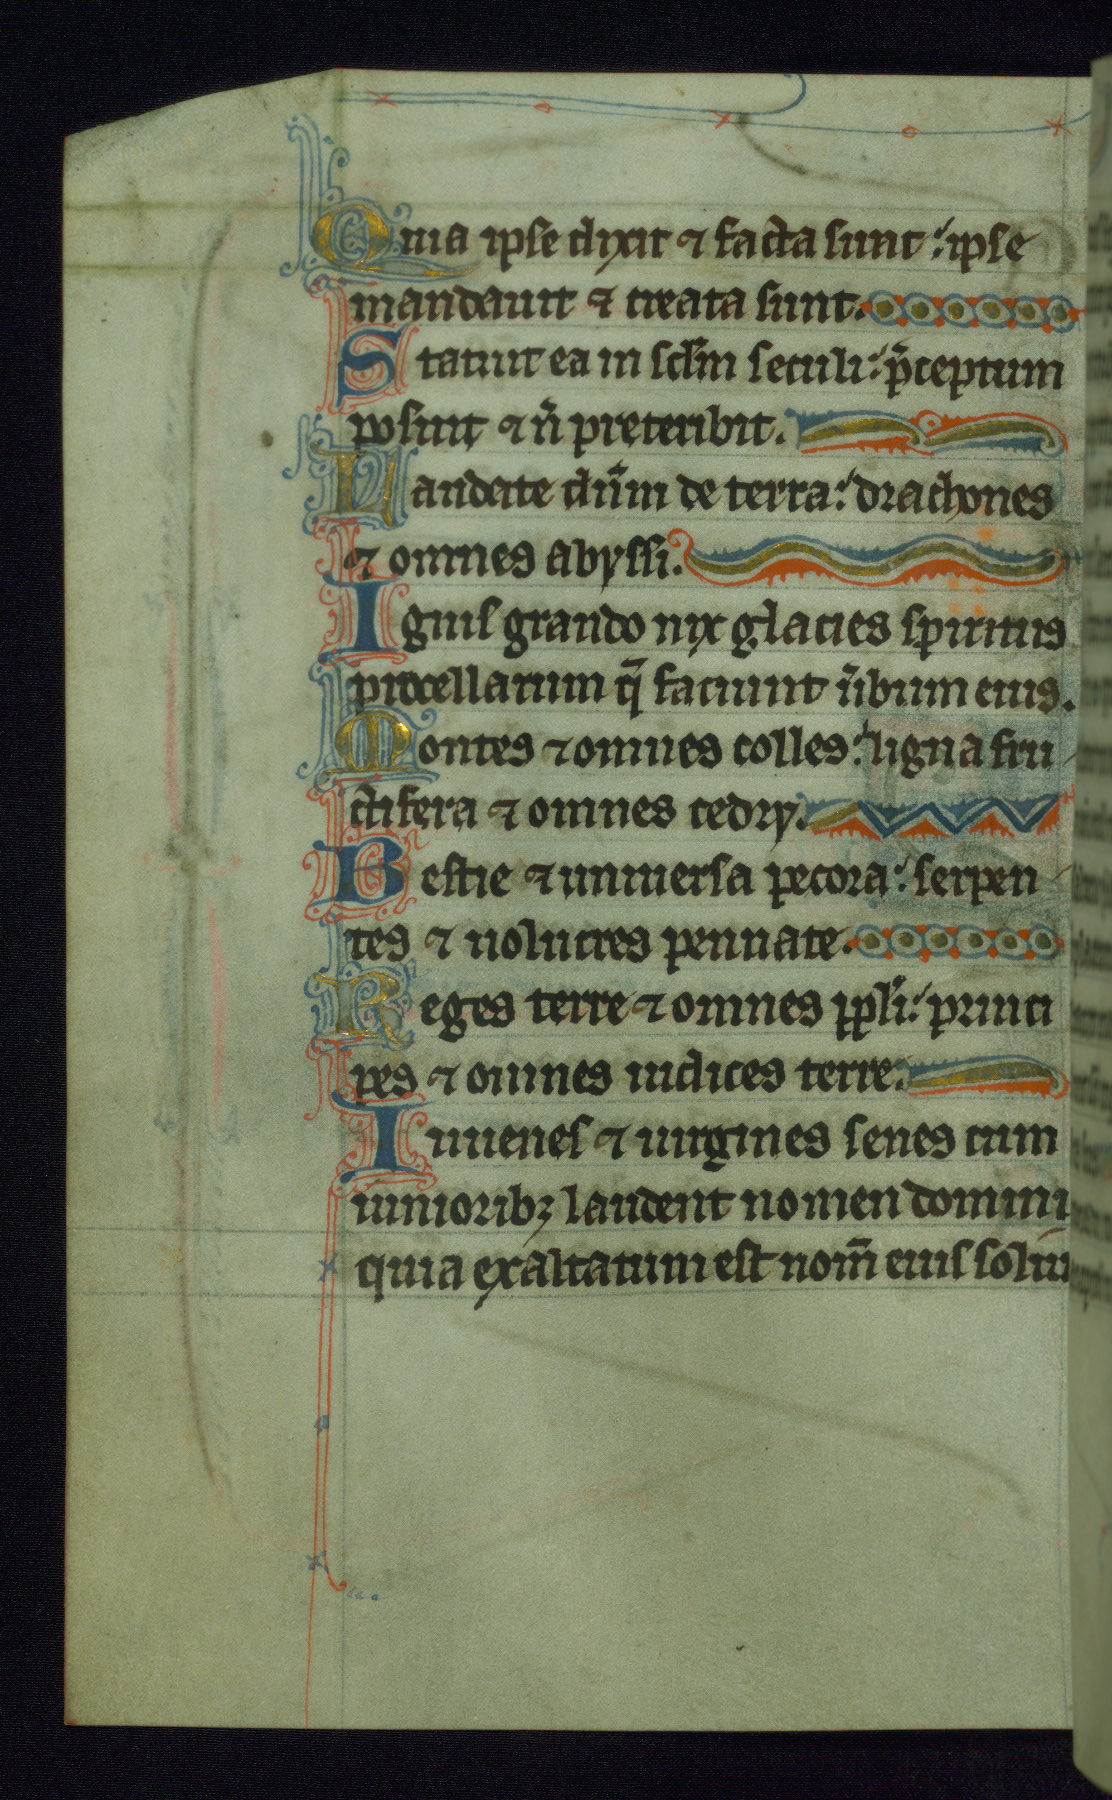 Quia ipse dixit ⁊ facta sunt: ipse
mandauit ⁊ creata sunt.
Statuit ea in sclm̄ seculi: p̄ceptum
posuit ⁊ n̄ preteribit.
Laudate dn̄m de terra: drachones
⁊ omnes abyssi.
Ignis grando nix glacies spiritus
procellarum q̄ faciunt u̾bum eius.
Montes ⁊ omnes colles: ligna fru
ctifera ⁊ omnes cedry.
Bestie ⁊ uniuersa pecora: serpen
tes ⁊ uolucres pennate.
Reges terre ⁊ omnes ppl̾i: princi
pes ⁊ omnes iudices terre.
Iuuenes ⁊ uirgines senes cum
iunioribꝫ laudent nomen domini
quia exaltatum est nom̄ eius soliu